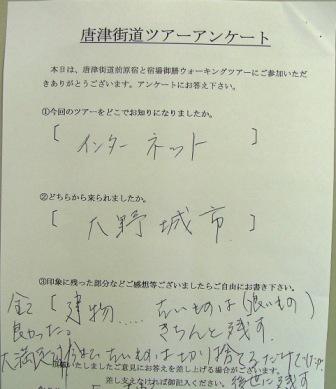 唐津街道ツアーアンケート
本日は、唐津街道前原宿と宿場御膳ウォーキングツアーにご参加いただ
きありがとうございます。アンケートにお答え下さい。
①今回のツアーをどこでお知りになりましたか。
[ インターネット ]
②どちらから来られましたか。
[ 大野城市 ]
③印象に残った部分などご感想等ございましたらご自由にお書き下さい。
全て [ 建物..... 古いものは(良いもの)
良かった。 きちんと残す.
大満足です 古いものは切り捨てるだけでしたが、
いたしましたご意見にお答えを差し上げる場合がございます。
差し支えなければ御記入ください。 後世に残す